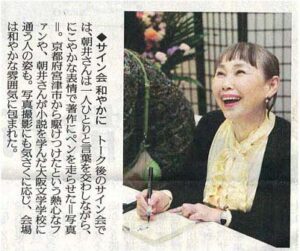 ◆サイン会 和やかに　トーク後のサイン会で
は、朝井さんは一人ひとりと言葉を交わしながら、
にこやかな表情で著作にペンを走らせた＝写真
＝。京都府宮津市から駆けつけたという熱心なフ
ァンや、朝井さんが小説を学んだ大阪文学学校に
通う人の姿も。写真撮影にも気さくに応じ、会場
は和やかな雰囲気に包まれた。